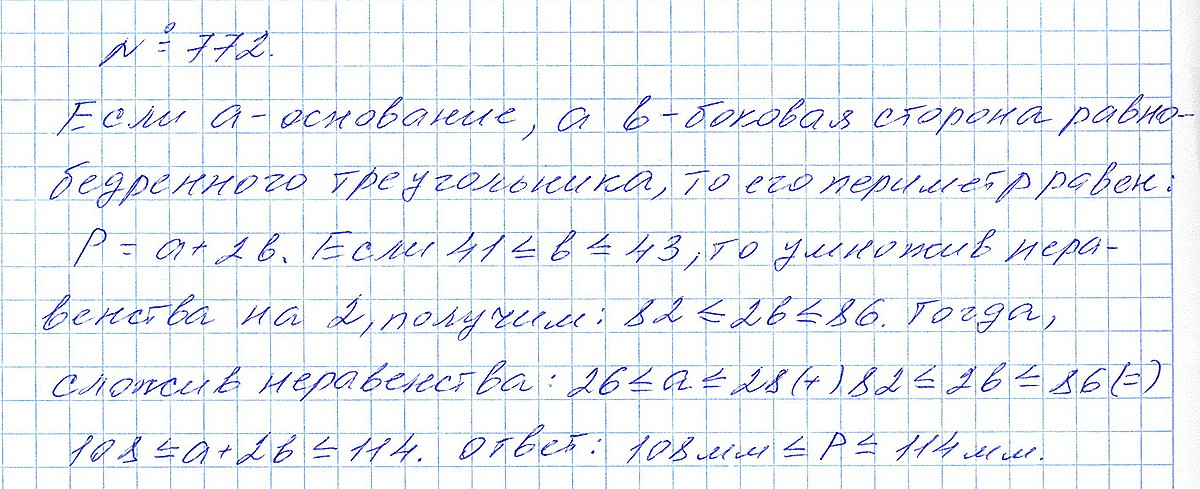 № 772.
Если a - основание, а b - боковая сторона равно-
бедренного треугольника, то его периметр равен:
P = a + 2b. Если 41 ≤ b ≤ 43, то умножив нера-
венства на 2, получим: 82 ≤ 2b ≤ 86. Тогда,
сложив неравенства: 26 ≤ a ≤ 28 (+) 82 ≤ 2b ≤ 86 (=)
108 ≤ a + 2b ≤ 114. Ответ: 108 мм ≤ P ≤ 114 мм.